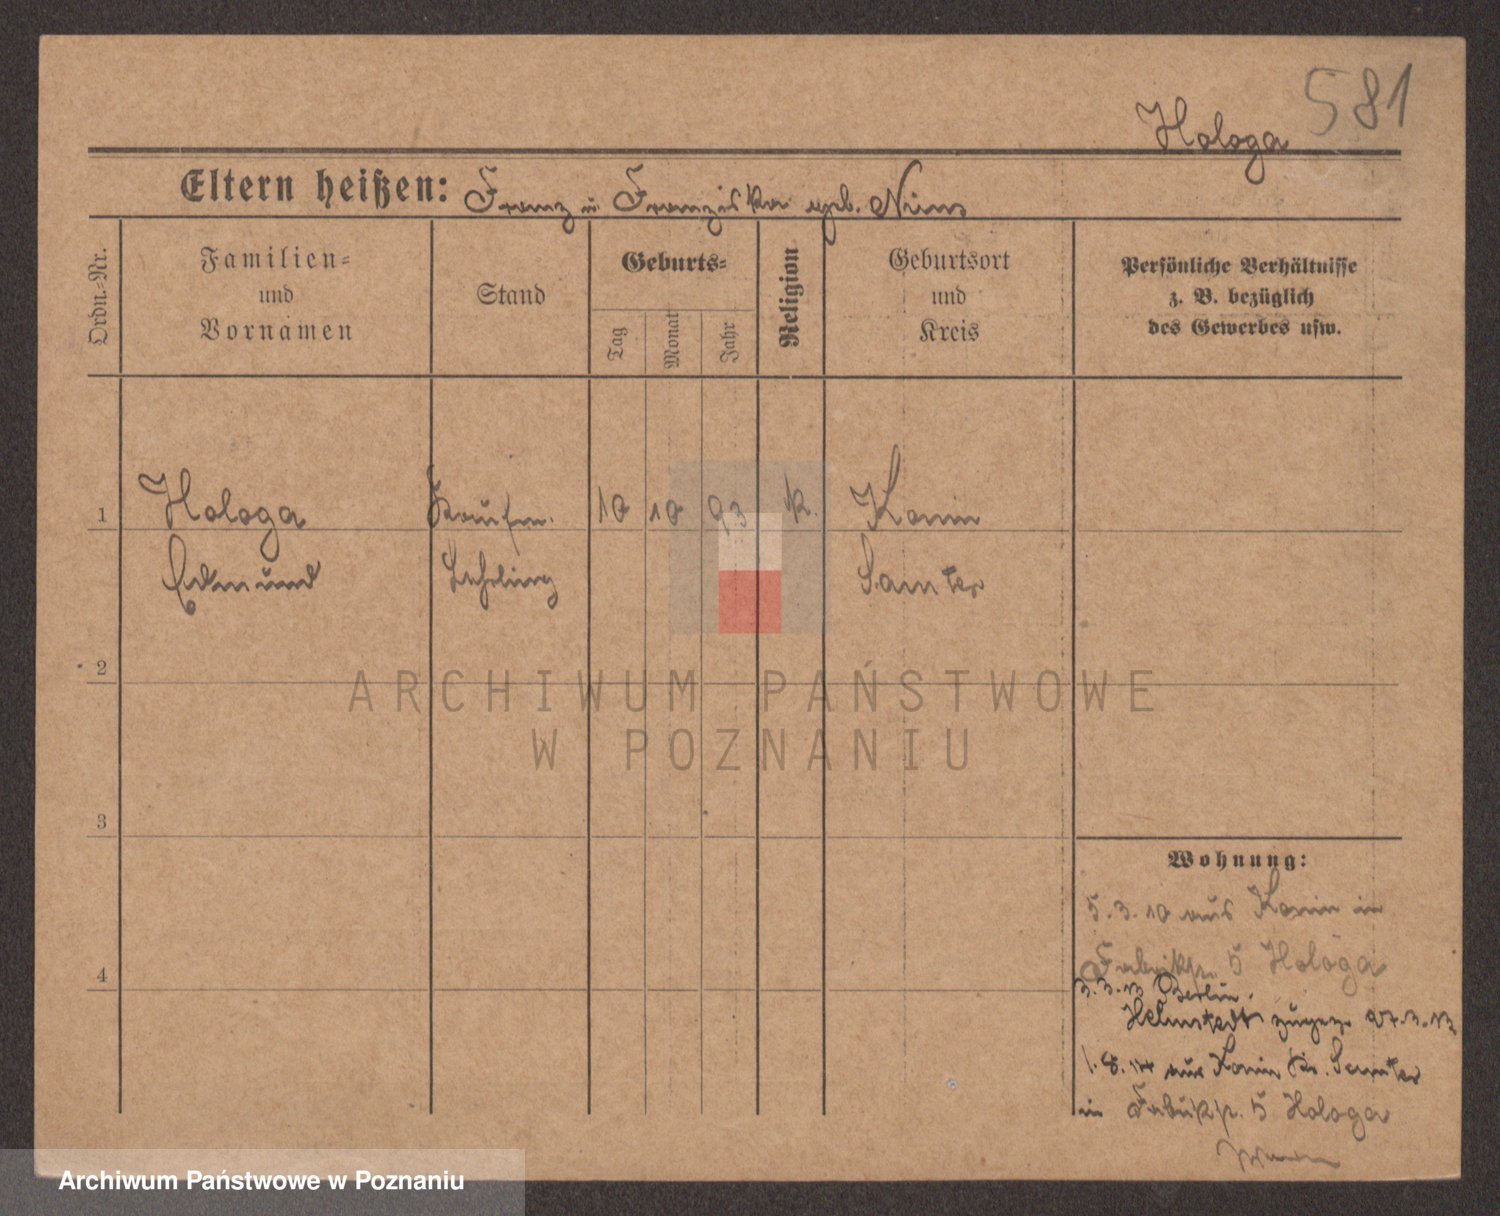 581
Hologa
Eltern heißen: Franz u. Franziska geb. Nims
Ordn.-Nr.
Familien=
und
Vornamen
Stand
Geburts=
Tag
Monat
Jahr
Religion
Geburtsort
und
Kreis
Persönliche Verhältnisse
z. B. bezüglich
des Gewerbes usw.
1
Hologa Kaufm. 10 10 93 k. Konin
Edmund Lehrling Samter
2
3
4
Wohnung:
5.3.10 aus Konin in
Fabrikstr. 5 Hologa
3.3.13 Berlin.
Helmstedt zugez. 27.3.13
1.8.14 aus Konin Kr. Samter
in Fabrikstr. 5 Hologa
ARCHIWUM PAŃSTWOWE
W POZNANIU
Archiwum Państwowe w Poznaniu